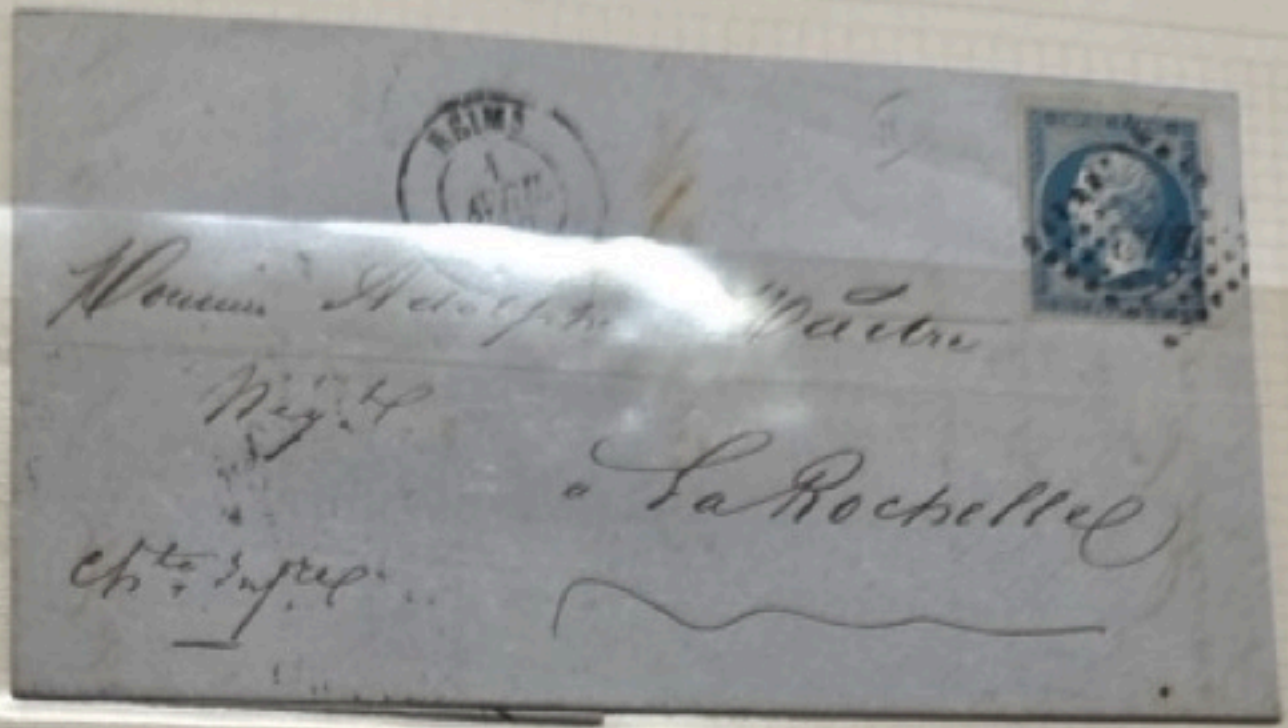 REIMS
1
Monsieur Adolphe
Négt
a La Rochelle
Chte Infre